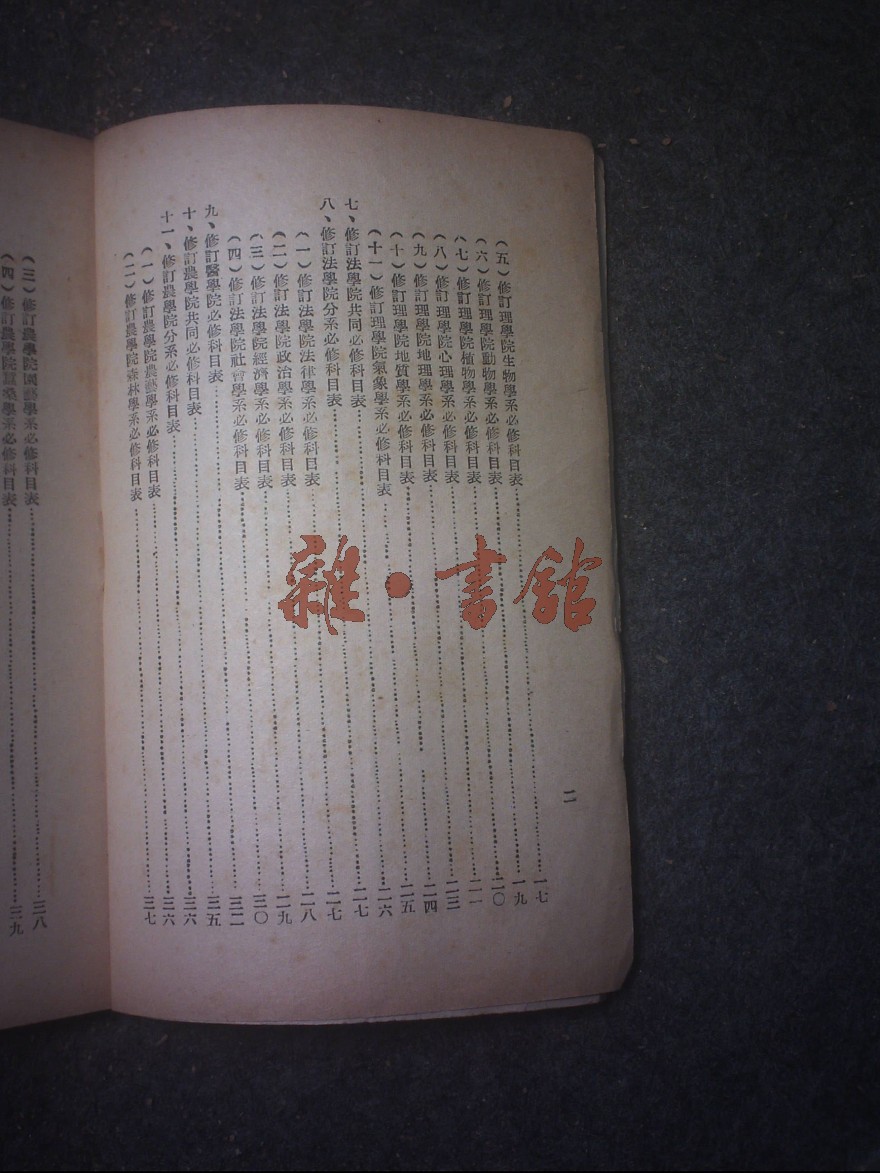 二
（五）修訂理學院生物學系必修科目表……一七
（六）修訂理學院動物學系必修科目表……一九
（七）修訂理學院植物學系必修科目表……二〇
（八）修訂理學院心理學系必修科目表……二一
（九）修訂理學院地理學系必修科目表……二三
（十）修訂理學院地質學系必修科目表……二四
（十一）修訂理學院氣象學系必修科目表……二五
七、修訂法學院共同必修科目表……二六
八、修訂法學院分系必修科目表……二七
（一）修訂法學院法律學系必修科目表……二七
（二）修訂法學院政治學系必修科目表……二八
（三）修訂法學院經濟學系必修科目表……二九
（四）修訂法學院社會學系必修科目表……三〇
九、修訂醫學院必修科目表……三二
十、修訂農學院共同必修科目表……三五
十一、修訂農學院分系必修科目表……三六
（一）修訂農學院農藝學系必修科目表……三六
（二）修訂農學院森林學系必修科目表……三七
（三）修訂農學院園藝學系必修科目表……三八
（四）修訂農學院蠶桑學系必修科目表……三九
雜·書館